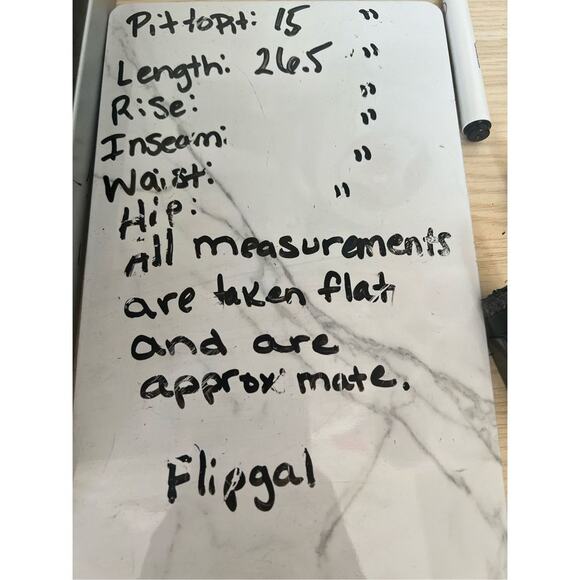 Pit to Pit: 15 "
Length: 26.5 "
Rise: "
Inseam: "
Waist: "
Hip: "
All measurements
are taken flat
and are
approximate.
Flipgal